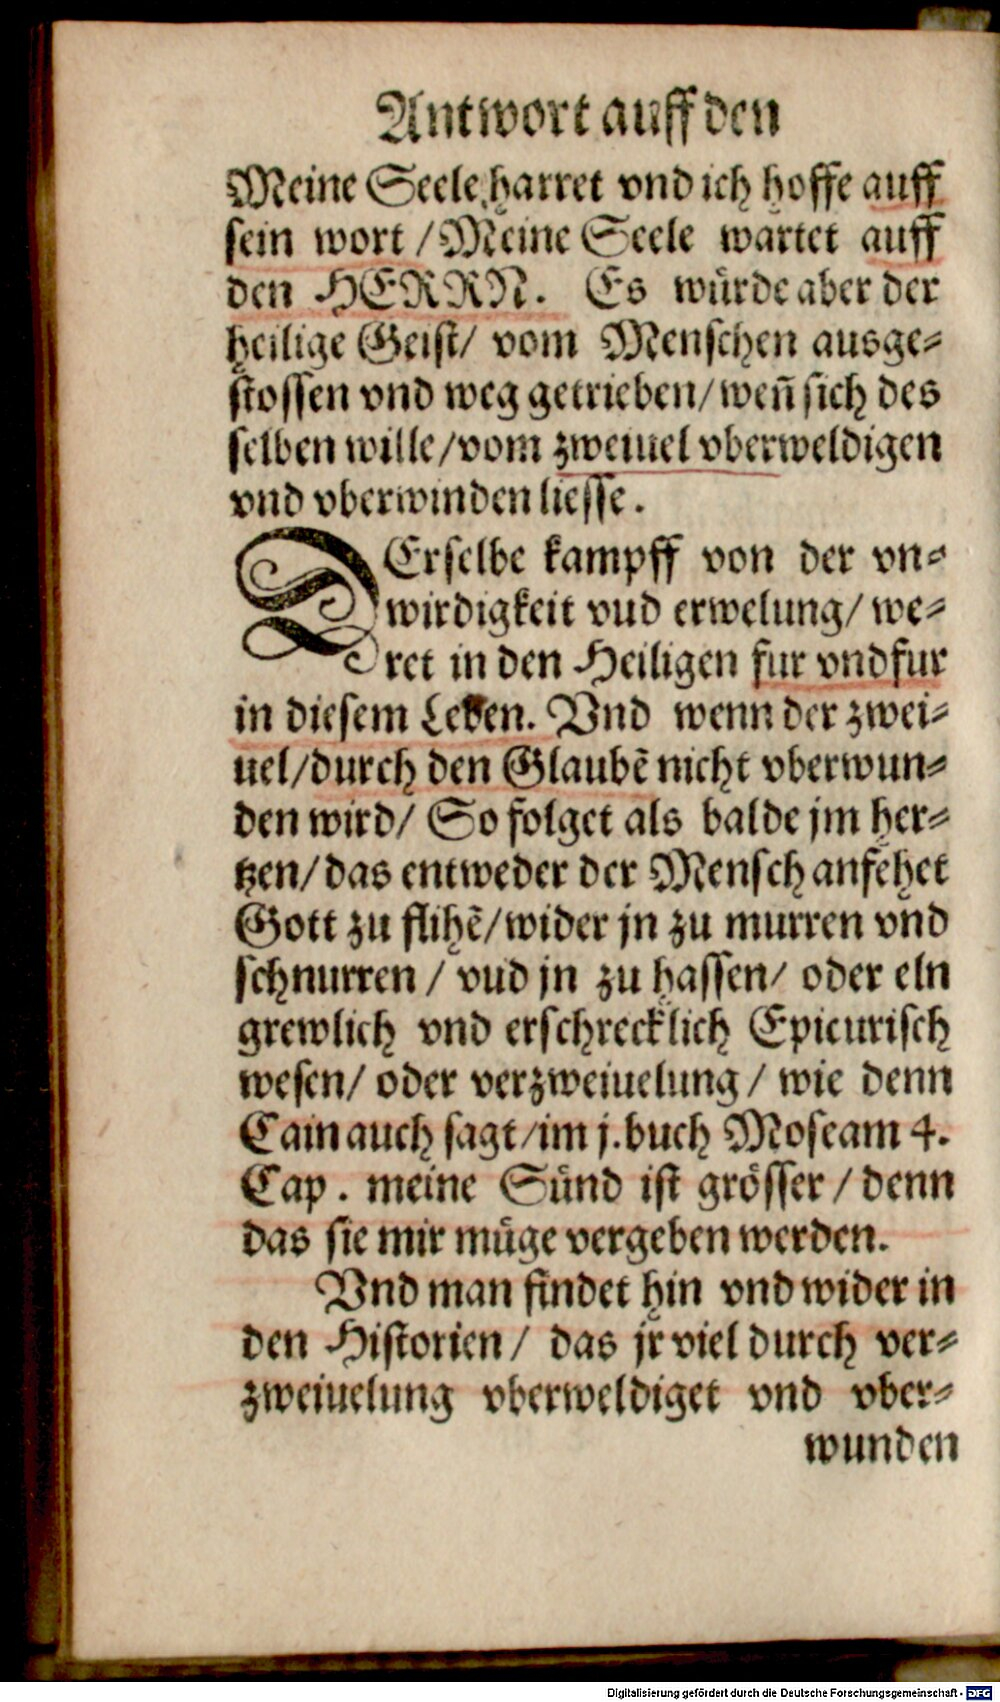 Antwort auff den
Meine Seele harret vnd ich hoffe auff
sein wort / Meine Seele wartet auff
den HERRN. Es würde aber der
heilige Geist/ vom Menschen ausge⸗
stossen vnd weg getrieben/ weñ sich des
selben wille/ vom zweiuel vberweldigen
vnd vberwinden liesse.
DErselbe kampff von der vn⸗
wirdigkeit vud erwelung/ we⸗
ret in den Heiligen fur vnd fur
in diesem Leben. Vnd wenn der zwei⸗
uel/ durch den Glaubẽ nicht vberwun⸗
den wird/ So folget als balde jm her⸗
tzen/ das entweder der Mensch anfehet
Gott zu flihẽ/ wider jn zu murren vnd
schnurren / vud jn zu hassen/ oder eln
grewlich vnd erschrecklich Epicurisch
wesen/ oder verzweiuelung / wie denn
Cain auch sagt/ im j. buch Mose am 4.
Cap. meine Sünd ist grösser / denn
das sie mir müge vergeben werden.
Vnd man findet hin vnd wider in
den Historien / das jr viel durch ver⸗
zweiuelung vberweldiget vnd vber⸗
wunden
Digitalisierung gefördert durch die Deutsche Forschungsgemeinschaft - DFG